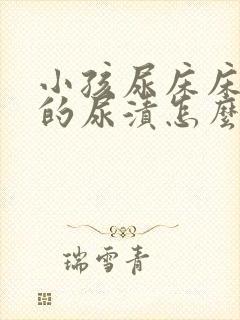 小孩尿床床
的尿渍怎麽
瑞雪青